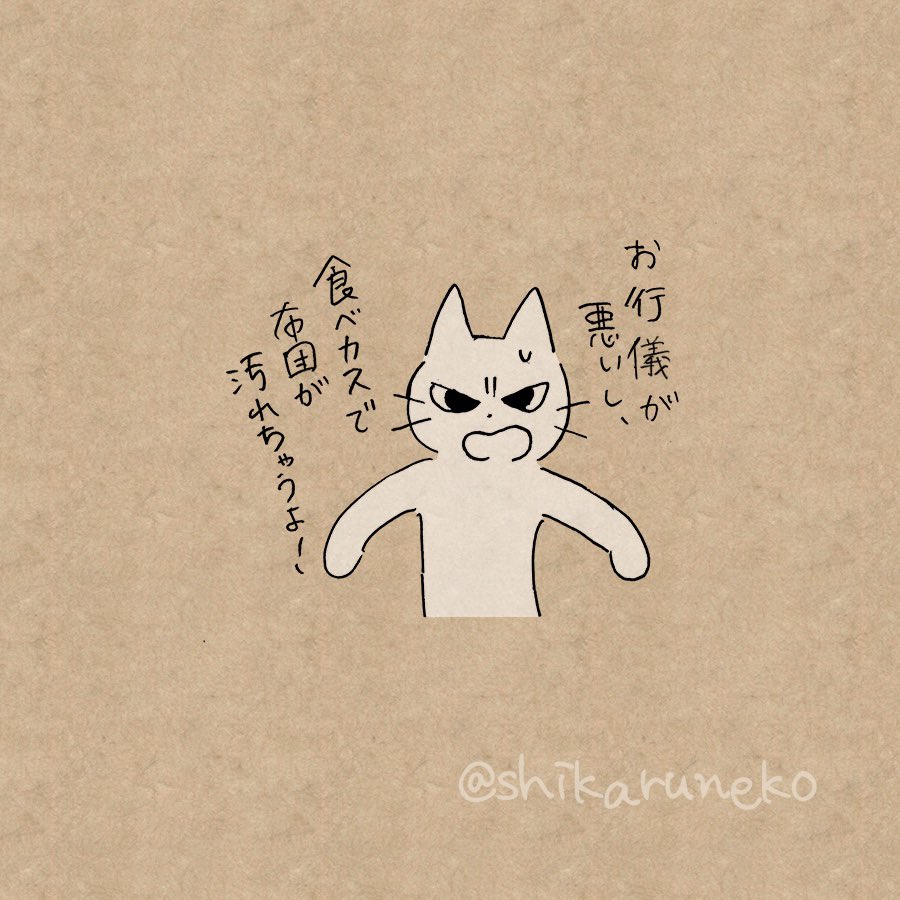 お行儀が
悪いし、
食べカスで
布団が
汚れちゃうよー、
@shikaruneko